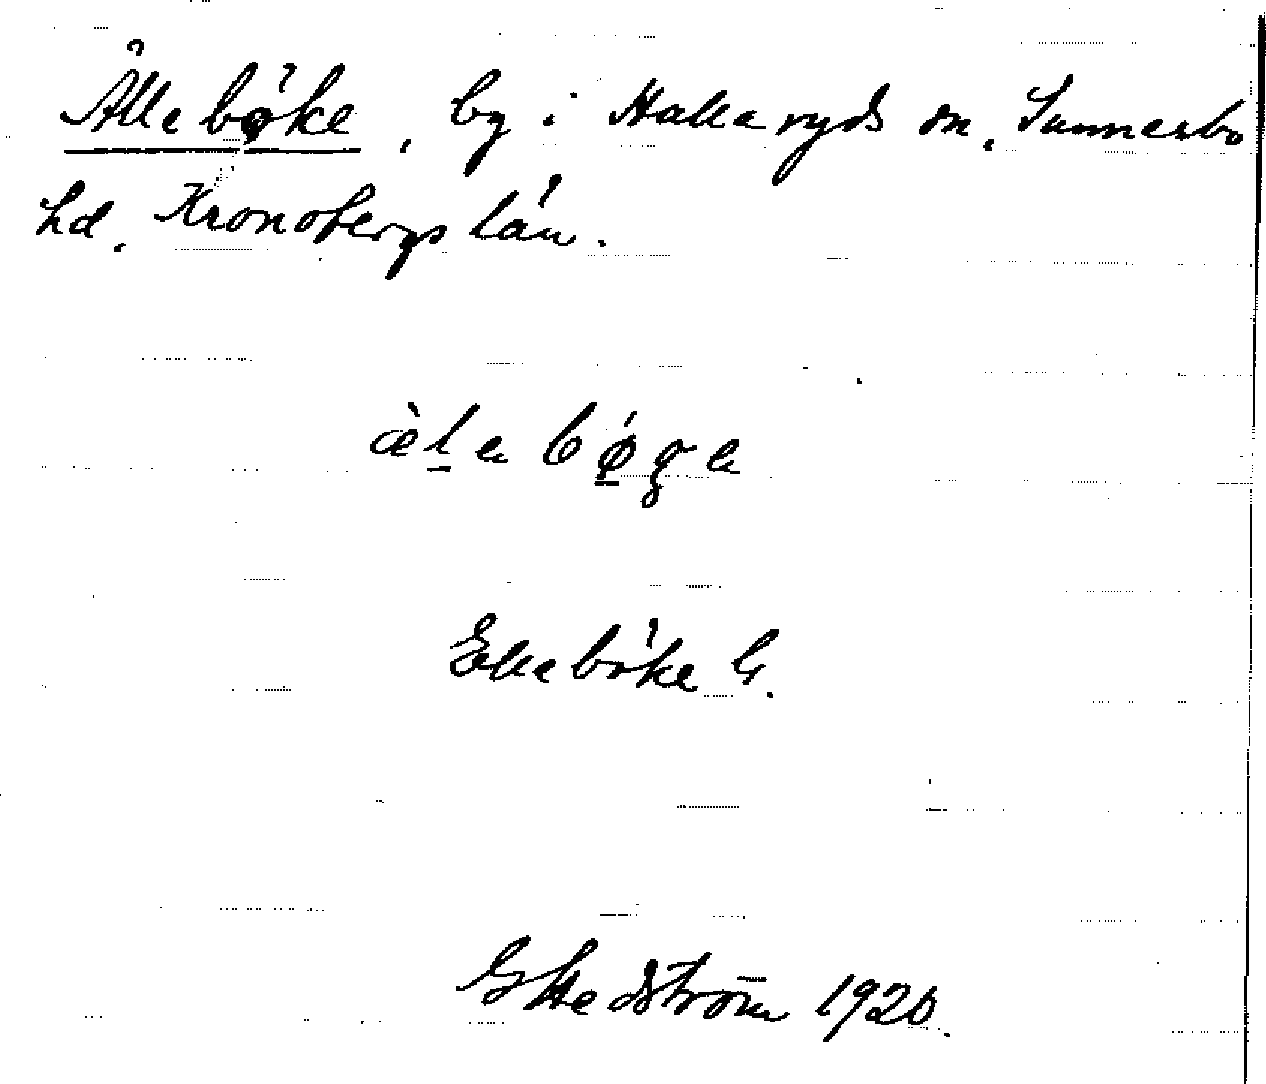 Älleböke, by i Hallaryds sn, Sunnerbo
hd, Kronobergs län.
æ̀lebǿge
Elleböke G.
G Hedström 1920.